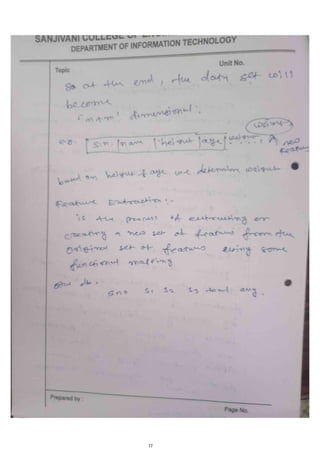 SANJIVANI COLLEGE OF
DEPARTMENT OF INFORMATION TECHNOLOGY
Topic
Unit No.
So at the end, the data set will
become
"n+m" dimensional.
weight
eg. S.n. nam height age
new
feature
based on height & age we determin weight
Feature Extraction :-
is the process of extracting or
creating a new set of features from the
original set of features using some
functional mapping
sno S1 S2 S3 total avg.
Prepared by :
Page No.
17